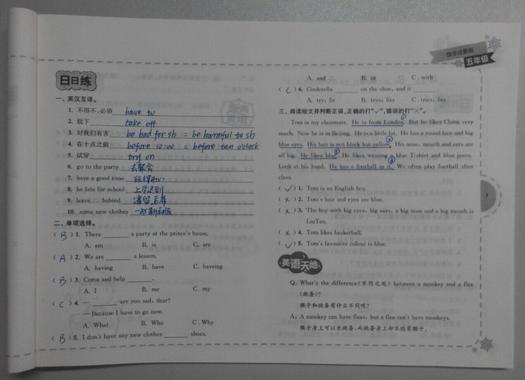 日日练
一、英汉互译。
1. 不得不,必须 have to
2. 脱下 take off
3. 对我们有害 be bad for sb = be harmful to sb
4. 在十点之前 before 10:00 = before ten o'clock
5. 试穿 try on
6. go to the party 去聚会
7. have a good time
8. be late for school 上学迟到
9. leave behind
10. some new clothes 一些新衣服
二、单项选择。
( B ) 1. There a party at the prince's house.
A. am B. is C. are
( A ) 2. We are a lesson.
A. having B. have C. haveing
( B ) 3. Come and help .
A. I B. me C. my
( C ) 4. — are you sad, dear?
— Because I have to go now.
A. What B. Who C. Why
( B ) 5. I don't have any new clothes shoes.
A. and B. or C. with
( C ) 6. Cinderella on the shoe, and it .
A. try; fit B. trys; fits C. tries; fits
三、阅读短文并判断正误,正确的打"√",错误的打"×"。
Tom is my classmate. He is from London. But he likes China very
much. Now he is in Beijing. He is a little fat. He has a round face and big
blue eyes. His hair is not black but yellow. His nose, mouth and ears are
all big. He likes blue. He likes wearing blue T-shirt and blue jeans.
Look at his hand. He has a football in it. We often play football after
class.
( √ ) 1. Tom is an English boy.
( × ) 2. Tom's hair and eyes are blue.
( × ) 3. The boy with big eyes, big ears, a big nose and a big mouth is
LiuTao.
( × ) 4. Tom likes basketball.
( √ ) 5. Tom's favourite colour is blue.
英语天地
Q: What's the difference(不同之处) between a monkey and a flea
(跳蚤)?
猴子和跳蚤有什么不同呢?
A: A monkey can have fleas, but a flea can't have monkeys.
猴子身上可以有跳蚤,而跳蚤身上却不能有猴子。
五年级